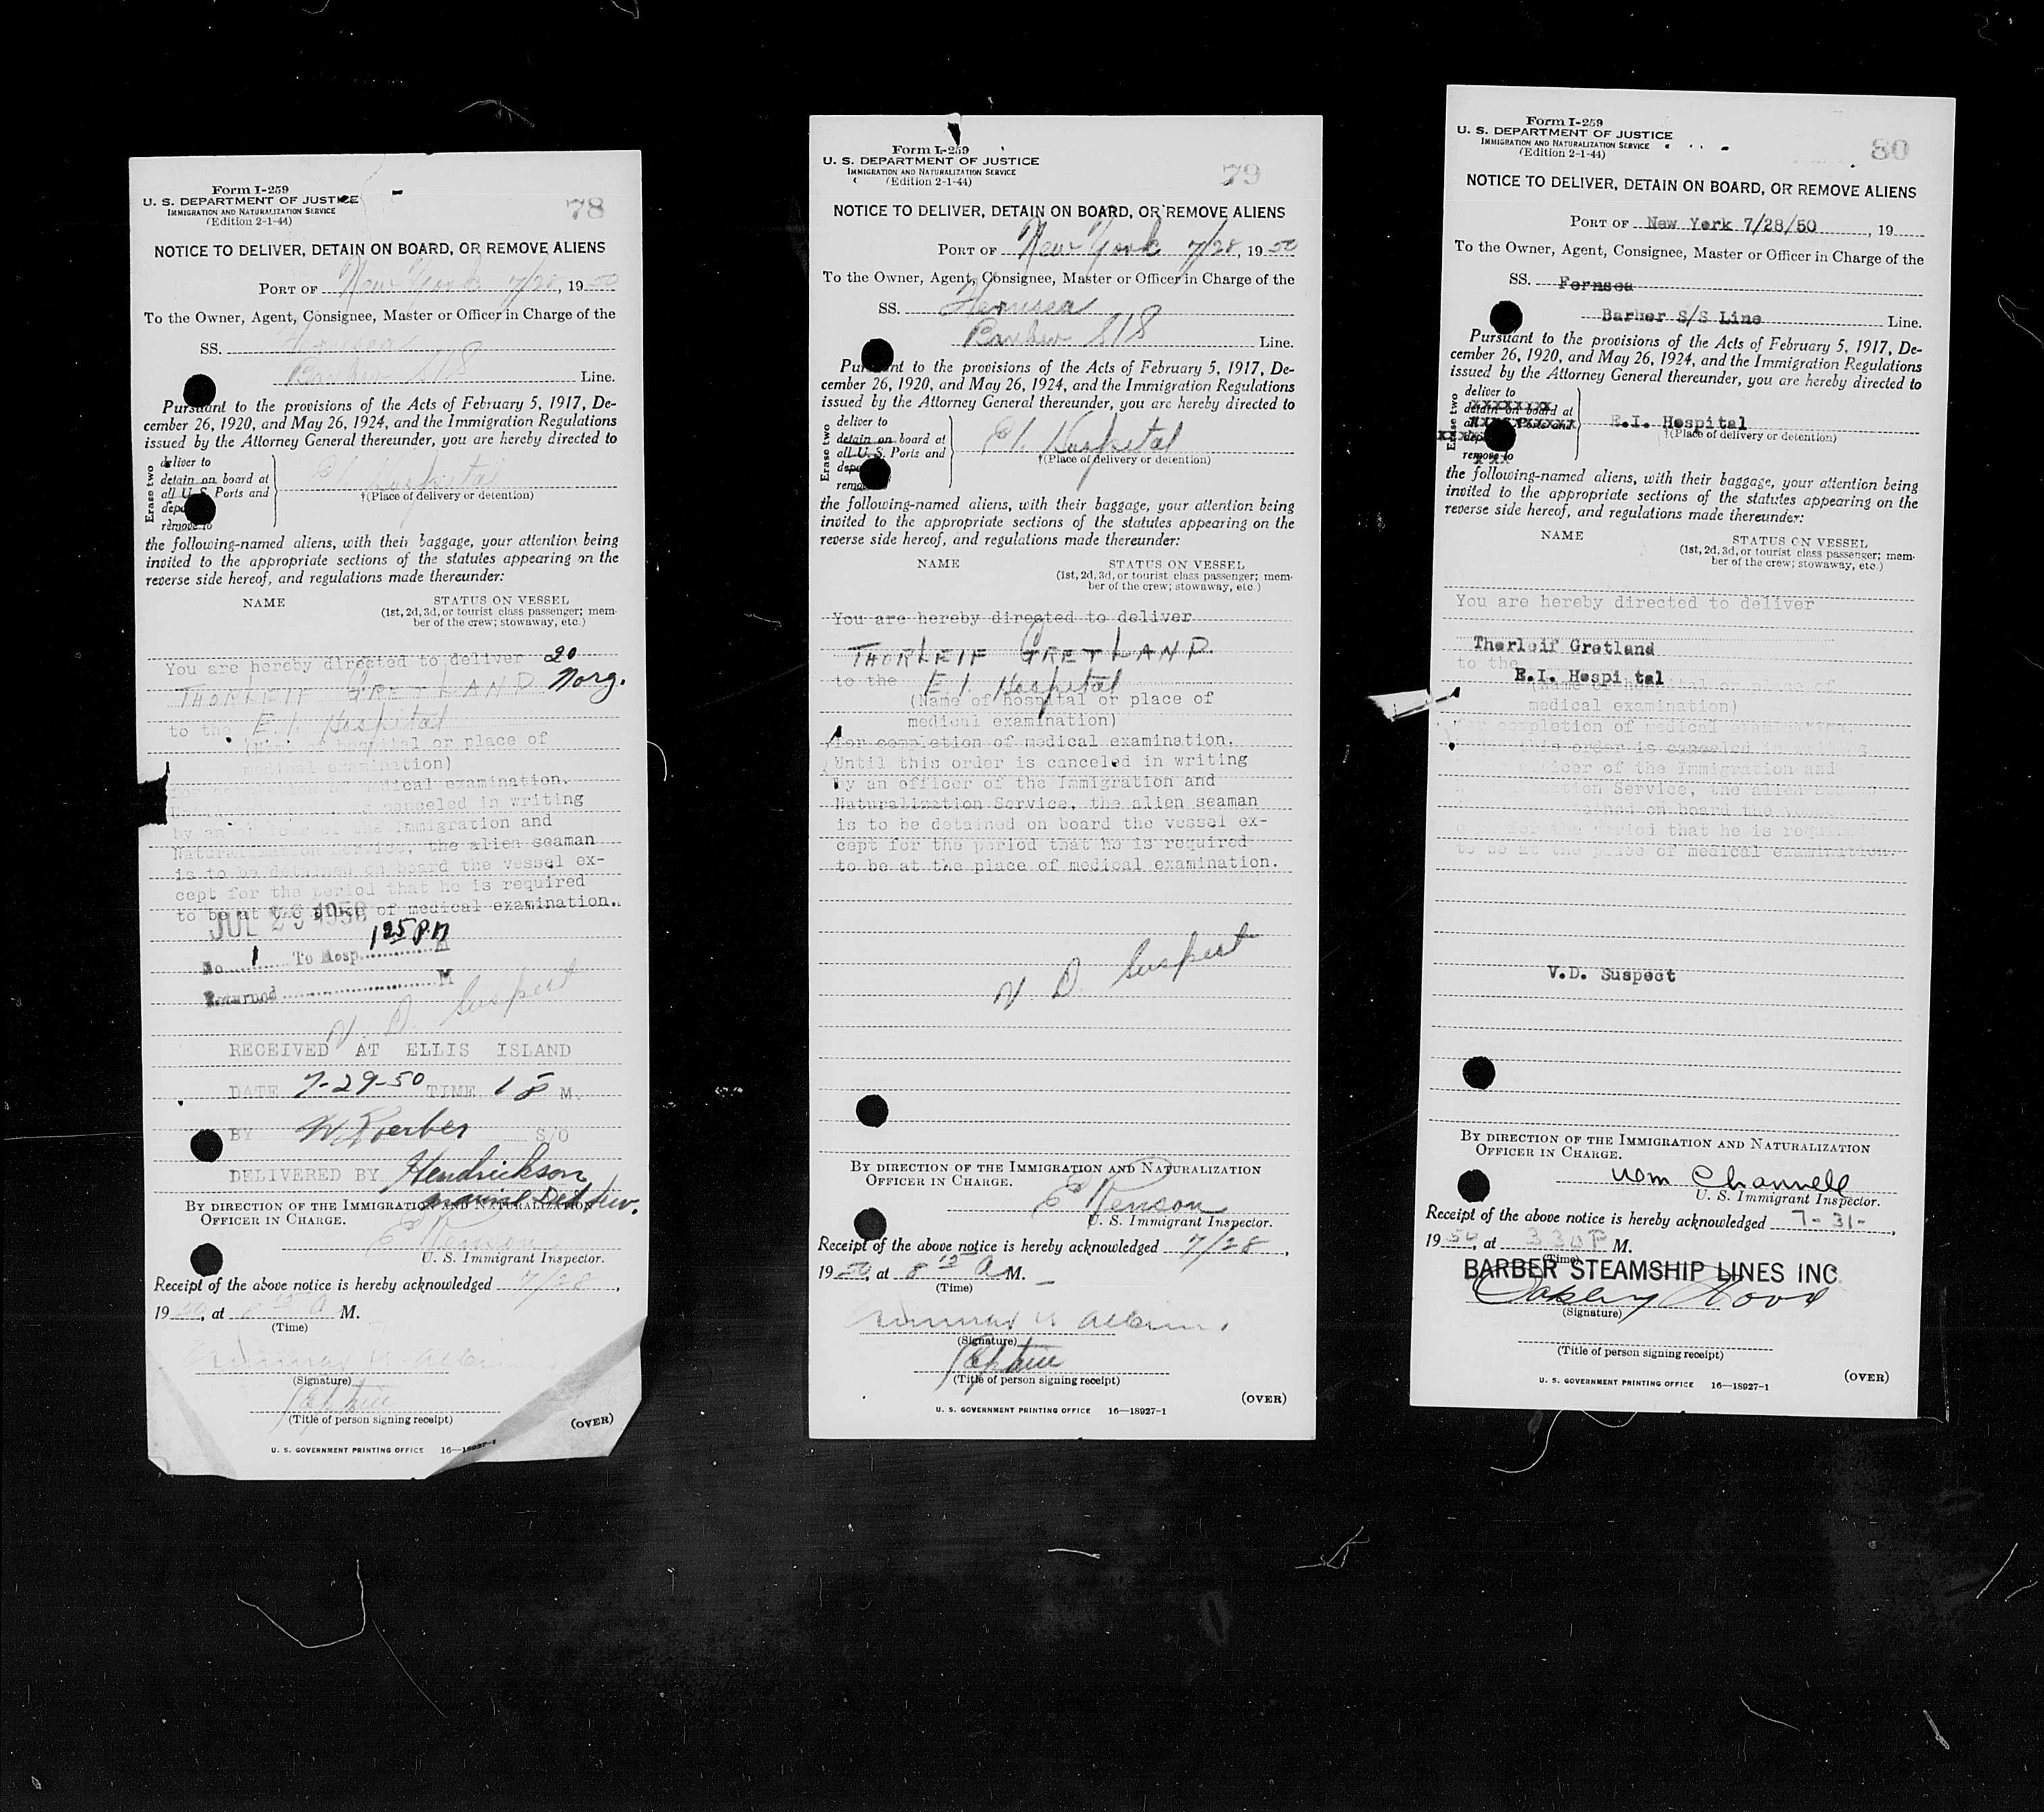 Form I-259
U. S. DEPARTMENT OF JUSTICE
IMMIGRATION AND NATURALIZATION SERVICE
(Edition 2-1-44)
78
NOTICE TO DELIVER, DETAIN ON BOARD, OR REMOVE ALIENS
PORT OF New York 7/28, 1950
To the Owner, Agent, Consignee, Master or Officer in Charge of the
SS.
Line.
Pursuant to the provisions of the Acts of February 5, 1917, De-
cember 26, 1920, and May 26, 1924, and the Immigration Regulations
issued by the Attorney General thereunder, you are hereby directed to
Erase two
deliver to
detain on board at
all U. S. Ports and
remove to
E I. Hospital
†(Place of delivery or detention)
the following-named aliens, with their baggage, your attention being
invited to the appropriate sections of the statutes appearing on the
reverse side hereof, and regulations made thereunder:
NAME
STATUS ON VESSEL
(1st, 2d, 3d, or tourist class passenger; mem-
ber of the crew; stowaway, etc.)
You are hereby directed to deliver 20
THORLEIF GRETLAND Norg.
to the E I. Hospital
(Name of hospital or place of
medical examination)
for completion of medical examination.
canceled in writing
by an officer of the Immigration and
Naturalization Service, the alien seaman
is to be detained on board the vessel ex-
cept for the period that he is required
to be at the place of medical examination.
JUL 29 1950
No. 1 To Hosp. 1 25 P.M
Returned M
V. D. Suspect
RECEIVED AT ELLIS ISLAND
DATE 7-29-50 TIME 1 P M.
BY W. Koerber S/O
DELIVERED BY Hendrickson
BY DIRECTION OF THE IMMIGRATION AND NATURALIZATION
OFFICER IN CHARGE.
U. S. Immigrant Inspector.
Receipt of the above notice is hereby acknowledged 7/28,
1950, at 8 15 A M.
(Time)
(Signature)
Captain
(Title of person signing receipt)
(OVER)
U. S. GOVERNMENT PRINTING OFFICE 16—18927-1
Form I-259
U. S. DEPARTMENT OF JUSTICE
IMMIGRATION AND NATURALIZATION SERVICE
(Edition 2-1-44)
79
NOTICE TO DELIVER, DETAIN ON BOARD, OR REMOVE ALIENS
PORT OF New York 7/28, 1950
To the Owner, Agent, Consignee, Master or Officer in Charge of the
SS.
Line.
Pursuant to the provisions of the Acts of February 5, 1917, De-
cember 26, 1920, and May 26, 1924, and the Immigration Regulations
issued by the Attorney General thereunder, you are hereby directed to
Erase two
deliver to
detain on board at
all U. S. Ports and
E I. Hospital
†(Place of delivery or detention)
the following-named aliens, with their baggage, your attention being
invited to the appropriate sections of the statutes appearing on the
reverse side hereof, and regulations made thereunder:
NAME
STATUS ON VESSEL
(1st, 2d, 3d, or tourist class passenger; mem-
ber of the crew; stowaway, etc.)
You are hereby directed to deliver
THORLEIF GRETLAND.
to the E I. Hospital
(Name of hospital or place of
medical examination)
for completion of medical examination.
Until this order is canceled in writing
by an officer of the Immigration and
Naturalization Service, the alien seaman
is to be detained on board the vessel ex-
cept for the period that he is required
to be at the place of medical examination.
V. D. Suspect
BY DIRECTION OF THE IMMIGRATION AND NATURALIZATION
OFFICER IN CHARGE.
U. S. Immigrant Inspector.
Receipt of the above notice is hereby acknowledged 7/28,
1950, at 8 15 A M.
(Time)
(Signature)
Captain
(Title of person signing receipt)
(OVER)
U. S. GOVERNMENT PRINTING OFFICE 16—18927-1
Form I-259
U. S. DEPARTMENT OF JUSTICE
IMMIGRATION AND NATURALIZATION SERVICE
(Edition 2-1-44)
80
NOTICE TO DELIVER, DETAIN ON BOARD, OR REMOVE ALIENS
PORT OF New York 7/28/50, 19
To the Owner, Agent, Consignee, Master or Officer in Charge of the
SS. Fernsea
Barber S/S Line Line.
Pursuant to the provisions of the Acts of February 5, 1917, De-
cember 26, 1920, and May 26, 1924, and the Immigration Regulations
issued by the Attorney General thereunder, you are hereby directed to
Erase two
deliver to
detain on board at
remove to
E.I. Hospital
†(Place of delivery or detention)
the following-named aliens, with their baggage, your attention being
invited to the appropriate sections of the statutes appearing on the
reverse side hereof, and regulations made thereunder:
NAME
STATUS ON VESSEL
(1st, 2d, 3d, or tourist class passenger; mem-
ber of the crew; stowaway, etc.)
You are hereby directed to deliver
Thorleif Gretland
to the
E.I. Hospital
(Name of hospital or place of
medical examination)
for completion of medical examination.
this order is canceled in writing
officer of the Immigration and
Naturalization Service, the alien seaman
detained on board the vessel
for the period that he is required
to be at the place of medical examination.
V.D. Suspect
BY DIRECTION OF THE IMMIGRATION AND NATURALIZATION
OFFICER IN CHARGE.
Wm Channell
U. S. Immigrant Inspector.
Receipt of the above notice is hereby acknowledged 7-31-,
1950, at 330 P M.
(Time)
BARBER STEAMSHIP LINES INC
(Signature)
(Title of person signing receipt)
(OVER)
U. S. GOVERNMENT PRINTING OFFICE 16—18927-1